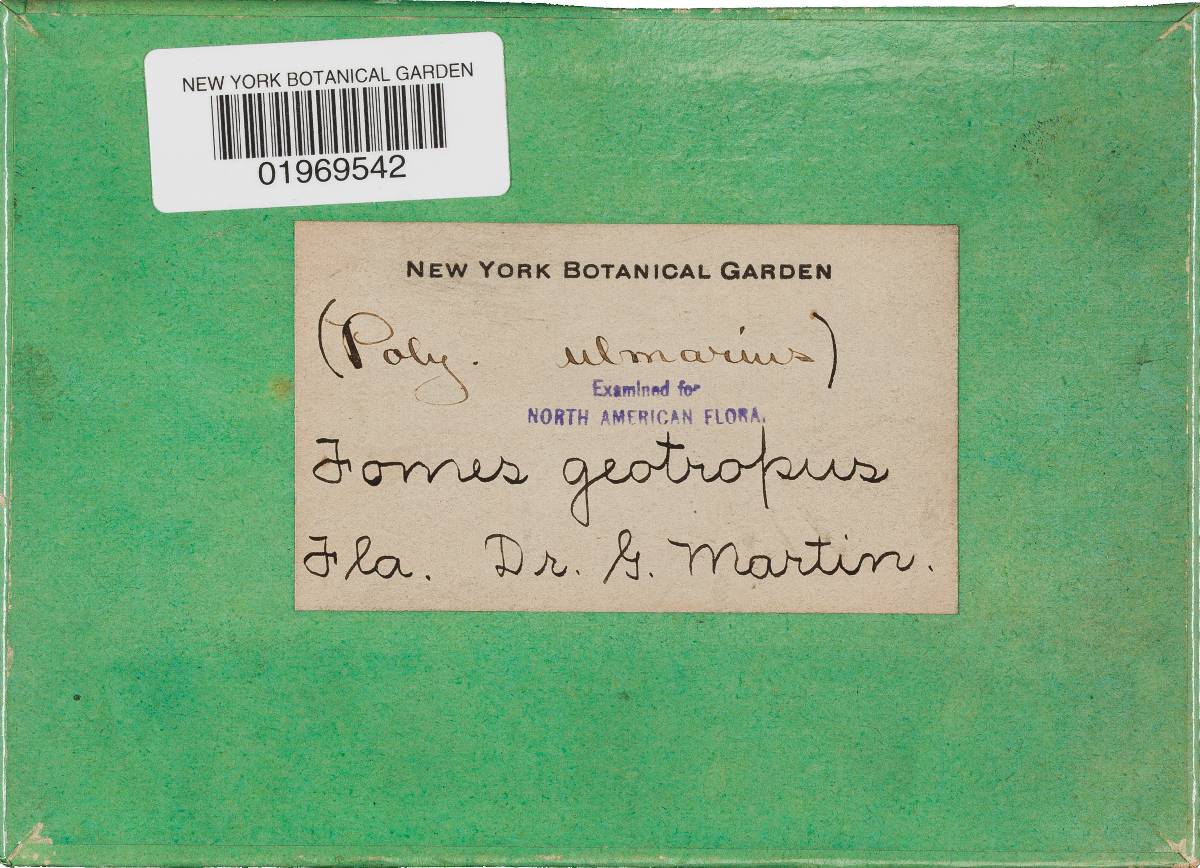 NEW YORK BOTANICAL GARDEN
01969542
NEW YORK BOTANICAL GARDEN
(Poly. ulmarius)
Examined for
NORTH AMERICAN FLORA.
Fomes geotropus
Fla. Dr. G. Martin.